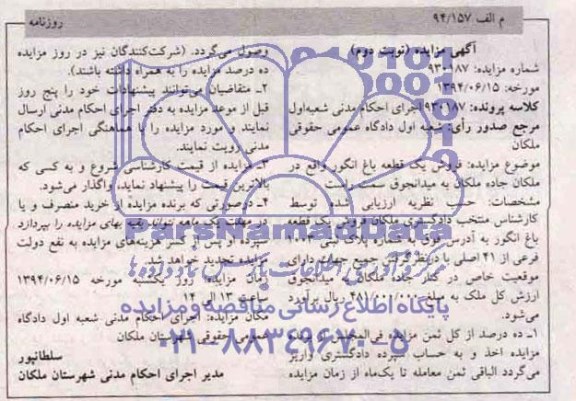 م الف ۹۴/۱۵۷
روزنامه
آگهی مزایده (نوبت دوم)
شماره مزایده: ۹۳۰۱۸۷
مورخه: ۱۳۹۴/۰۶/۱۵
کلاسه پرونده: ۹۳۰۱۸۷ اجرای احکام مدنی شعبه اول
مرجع صدور رأی: شعبه اول دادگاه عمومی حقوقی
ملکان
موضوع مزایده: فروش یک قطعه باغ انگور واقع در
ملکان جاده ملکان به میدانجوق سمت راست
مشخصات: حسب نظریه ارزیابی شده توسط
کارشناس منتخب دادگستری ملکان فروش یک قطعه
باغ انگور به آدرس فوق به شماره پلاک ثبتی ۱۰۰۳
فرعی از ۴۱ اصلی با درنظر گرفتن جمیع جهات دارای
موقعیت خاص در کنار جاده ملکان به میدانجوق
ارزش کل ملک به مبلغ ریال برآورد
می‌شود.
۱ـ ده درصد از کل ثمن مزایده فی‌المجلس از برنده
مزایده اخذ و به حساب سپرده دادگستری واریز
می‌گردد الباقی ثمن معامله تا یک‌ماه از زمان مزایده
وصول می‌گردد. (شرکت‌کنندگان نیز در روز مزایده
ده درصد مزایده را به همراه داشته باشند).
۲ـ متقاضیان می‌توانند پیشنهادات خود را پنج روز
قبل از موعد مزایده به دفتر اجرای احکام مدنی ارسال
نمایند و مورد مزایده را با هماهنگی اجرای احکام
مدنی رویت نمایند.
۳ـ مزایده از قیمت کارشناسی شروع و به کسی که
بالاترین قیمت را پیشنهاد نماید، واگذار می‌شود.
۴ـ درصورتی که برنده مزایده از خرید منصرف و یا
در مهلت یک ماهه نتواند بقیه بهای مزایده را بپردازد
سپرده او پس از کسر هزینه‌های مزایده به نفع دولت
مزایده تجدید خواهد شد.
زمان مزایده: روز یکشنبه مورخه ۱۳۹۴/۰۶/۱۵
ساعت ۱۳ الی ۱۴
مکان مزایده: اجرای احکام مدنی شعبه اول دادگاه
عمومی حقوقی شهرستان ملکان
سلطانپور
مدیر اجرای احکام مدنی شهرستان ملکان
ParsNamadData
پایگاه اطلاع رسانی مناقصه و مزایده
۰۲۱-۸۸۳۴۹۶۷۰-۵